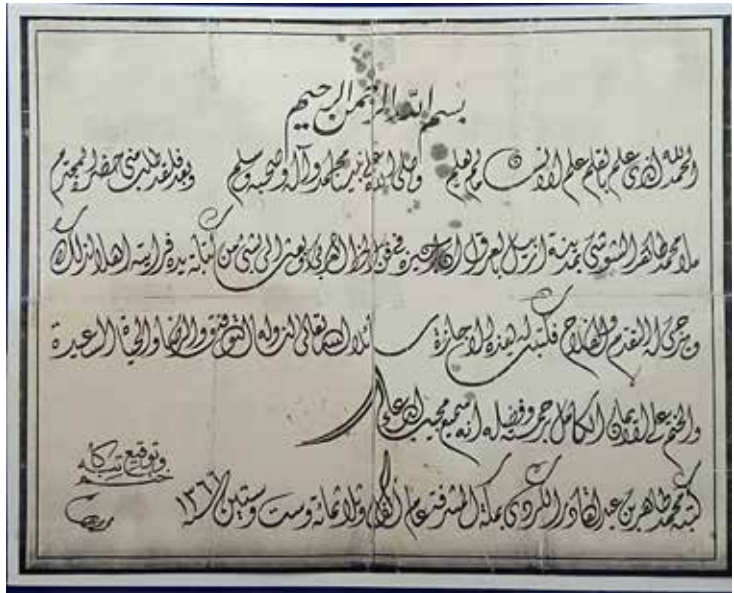 بسم الله الرحمن الرحيم
الحمد لله الذي علم بالقلم علم الانسان ما لم يعلم وصلى الله على نبينا محمد وآله وصحبه وسلم وبعد فلقد طلب مني حضرة المحترم
ملا محمد طاهر الشوشي بمدينة اربيل بالعراق ان اجيزه في فن الخط العربي وبعث الي بشيء من كتابة يده فرايته اهلا لذلك
ورجوت له التقدم والفلاح فكتبت له هذه الاجازة سائلا الله تعالى لنا وله التوفيق والرضا والحياة السعيدة
والختم على الايمان الكامل بمنه وفضله انه سميع مجيب الدعاء
كتبه محمد طاهر بن عبد القادر الكردي بمكة المشرفة عام الف وثلاثمائة وست وستين ١٣٦٦
وتوقيع